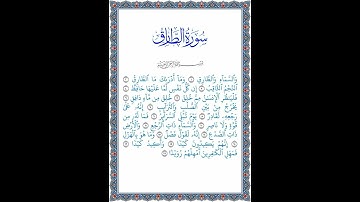 سورة الطارق
بسم الله الرحمن الرحيم
وَالسَّمَاءِ وَالطَّارِقِ ۝ وَمَا أَدْرَاكَ مَا الطَّارِقُ ۝
النَّجْمُ الثَّاقِبُ ۝ إِن كُلُّ نَفْسٍ لَّمَّا عَلَيْهَا حَافِظٌ ۝
فَلْيَنظُرِ الْإِنسَانُ مِمَّ خُلِقَ ۝ خُلِقَ مِن مَّاءٍ دَافِقٍ ۝
يَخْرُجُ مِن بَيْنِ الصُّلْبِ وَالتَّرَائِبِ ۝ إِنَّهُ عَلَىٰ
رَجْعِهِ لَقَادِرٌ ۝ يَوْمَ تُبْلَى السَّرَائِرُ ۝ فَمَا لَهُ مِن
قُوَّةٍ وَلَا نَاصِرٍ ۝ وَالسَّمَاءِ ذَاتِ الرَّجْعِ ۝ وَالْأَرْضِ
ذَاتِ الصَّدْعِ ۝ إِنَّهُ لَقَوْلٌ فَصْلٌ ۝ وَمَا هُوَ بِالْهَزْلِ
۝ إِنَّهُمْ يَكِيدُونَ كَيْدًا ۝ وَأَكِيدُ كَيْدًا ۝
فَمَهِّلِ الْكَافِرِينَ أَمْهِلْهُمْ رُوَيْدًا ۝